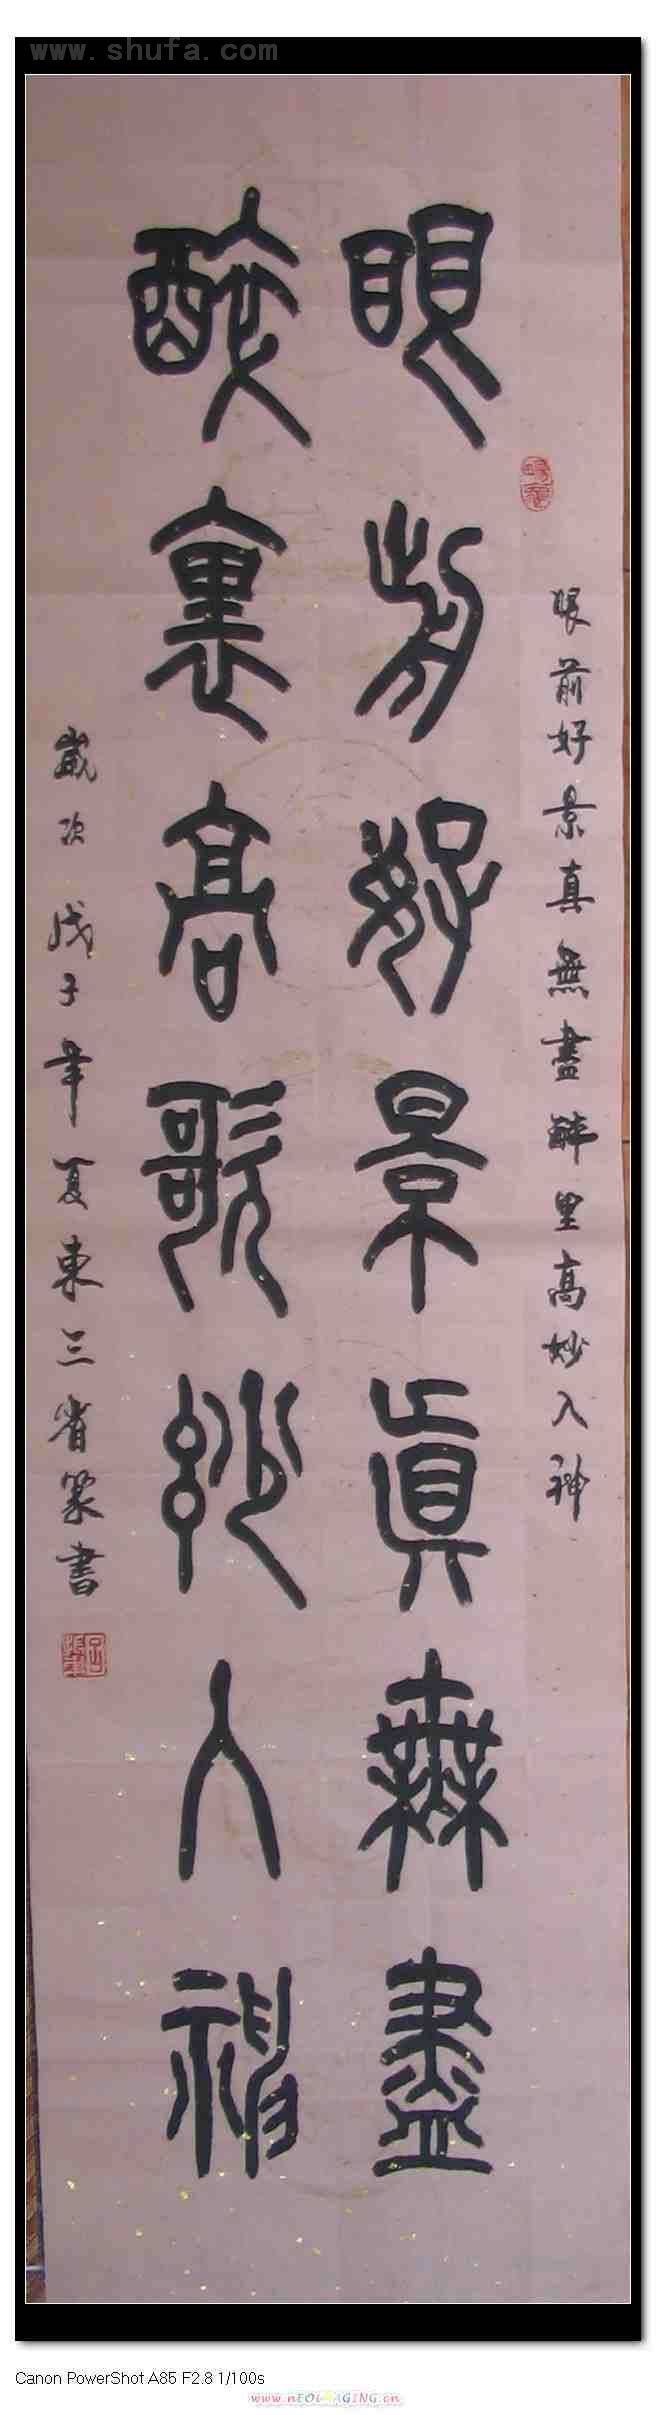 www.shufa.com
眼前好景真無盡醉里高妙入神
眼前好景眞無盡
醉裏高歌妙入神
歲次戊子年夏東三省篆書
Canon PowerShot A85 F2.8 1/100s
www.nEOiMAGING.cn